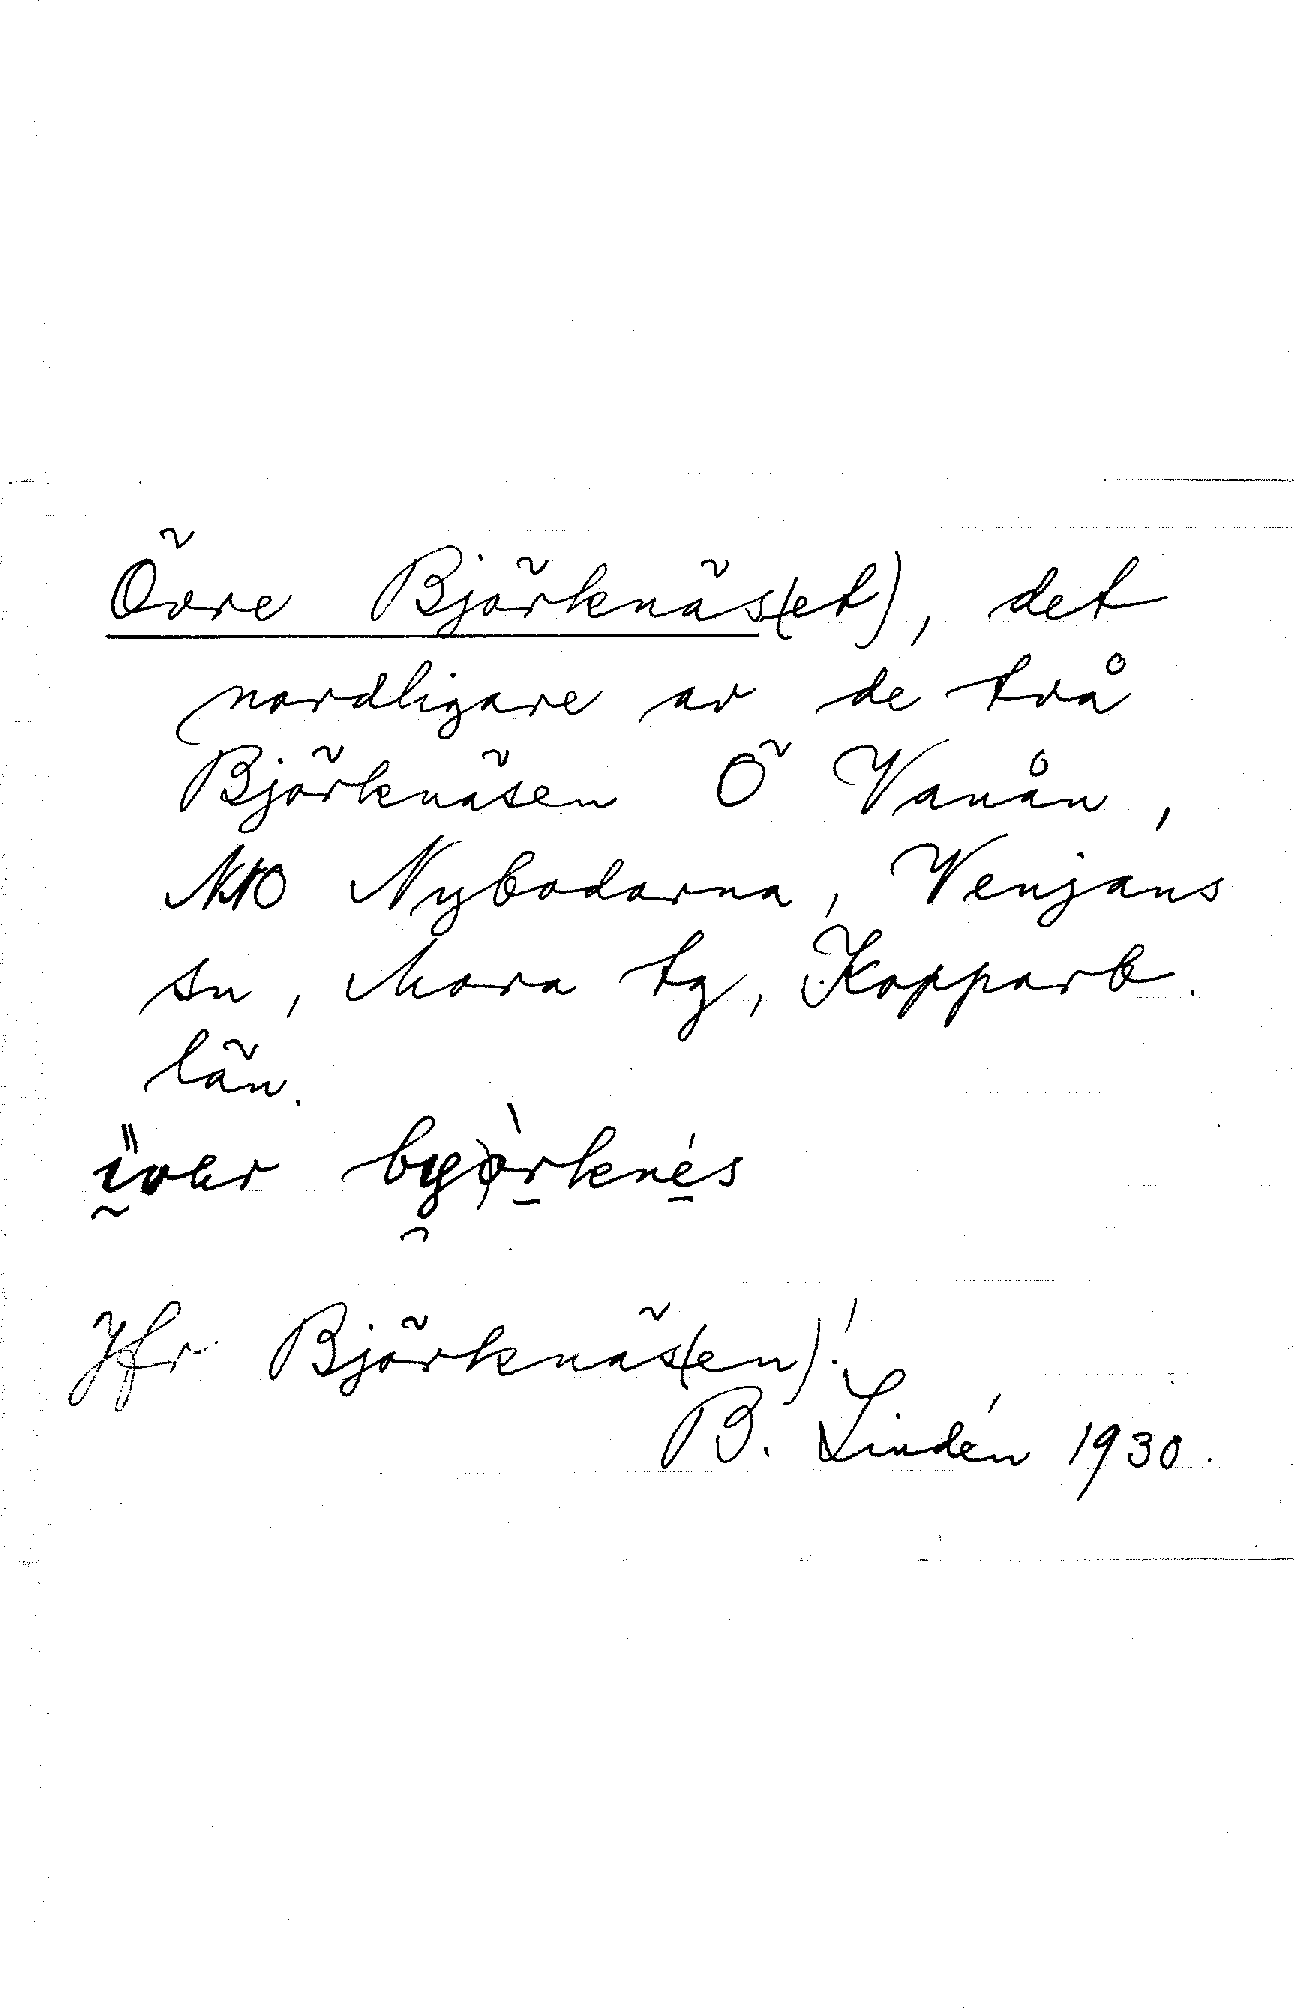 Övre Björknäs(et), det
nordligare av de två
Björknäsen Ö Vanån,
NNO Nybodarna, Venjans
sn, Mora tg, Kopparb.
län.
byòrknés
Jfr Björknäs(en)!
B. Lindén 1930.